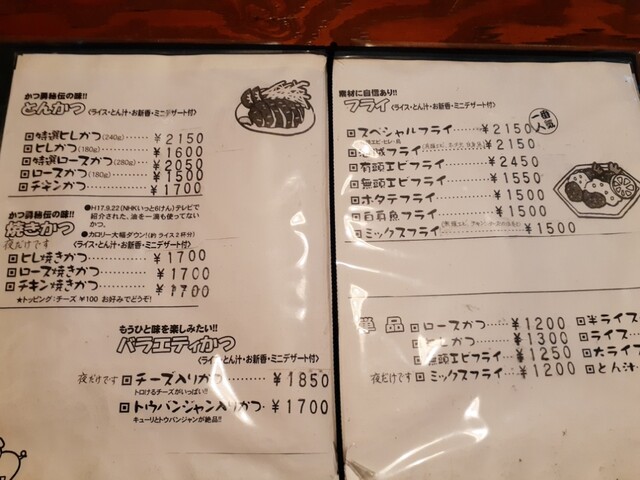 かつ昇秘伝の味!!
とんかつ〈ライス・とん汁・お新香・ミニデザート付〉
特選ヒレかつ(240g)……¥2150
ヒレかつ(180g)……¥1600
特選ロースかつ(280g)……¥2050
ロースかつ(180g)……¥1500
チキンかつ……¥1700
かつ昇秘伝の味!!
焼きかつ
夜だけです
●H17.9.22(NHKいっと6けん)テレビで
紹介された、油を一滴も使ってない
かつ。
●カロリー大幅ダウン!(約 ライス2杯分)
〈ライス・とん汁・お新香・ミニデザート付〉
ヒレ焼きかつ……¥1700
ロース焼きかつ……¥1700
チキン焼きかつ……¥1700
★トッピング:チーズ ¥100 お好みでどうぞ!
もうひと味を楽しみたい!!
バラエティかつ
〈ライス・とん汁・お新香・ミニデザート付〉
夜だけです チーズ入りかつ……¥1850
トロけるチーズがいっぱい!!
トウバンジャン入りかつ…¥1700
キューリとトウバンジャンが絶品!!
素材に自信あり!!
フライ〈ライス・とん汁・お新香・ミニデザート付〉
スペシャルフライ……¥2150
一番人気
フライ……¥2150
有頭エビフライ……¥2450
無頭エビフライ……¥1550
ホタテフライ……¥1500
白身魚フライ……¥1500
ミックスフライ……¥1500
単品
ロースかつ……¥1200
かつ……¥1300
無頭エビフライ……¥1250
夜だけです ミックスフライ……¥1200
半ライス
ライス
大ライス
とん汁